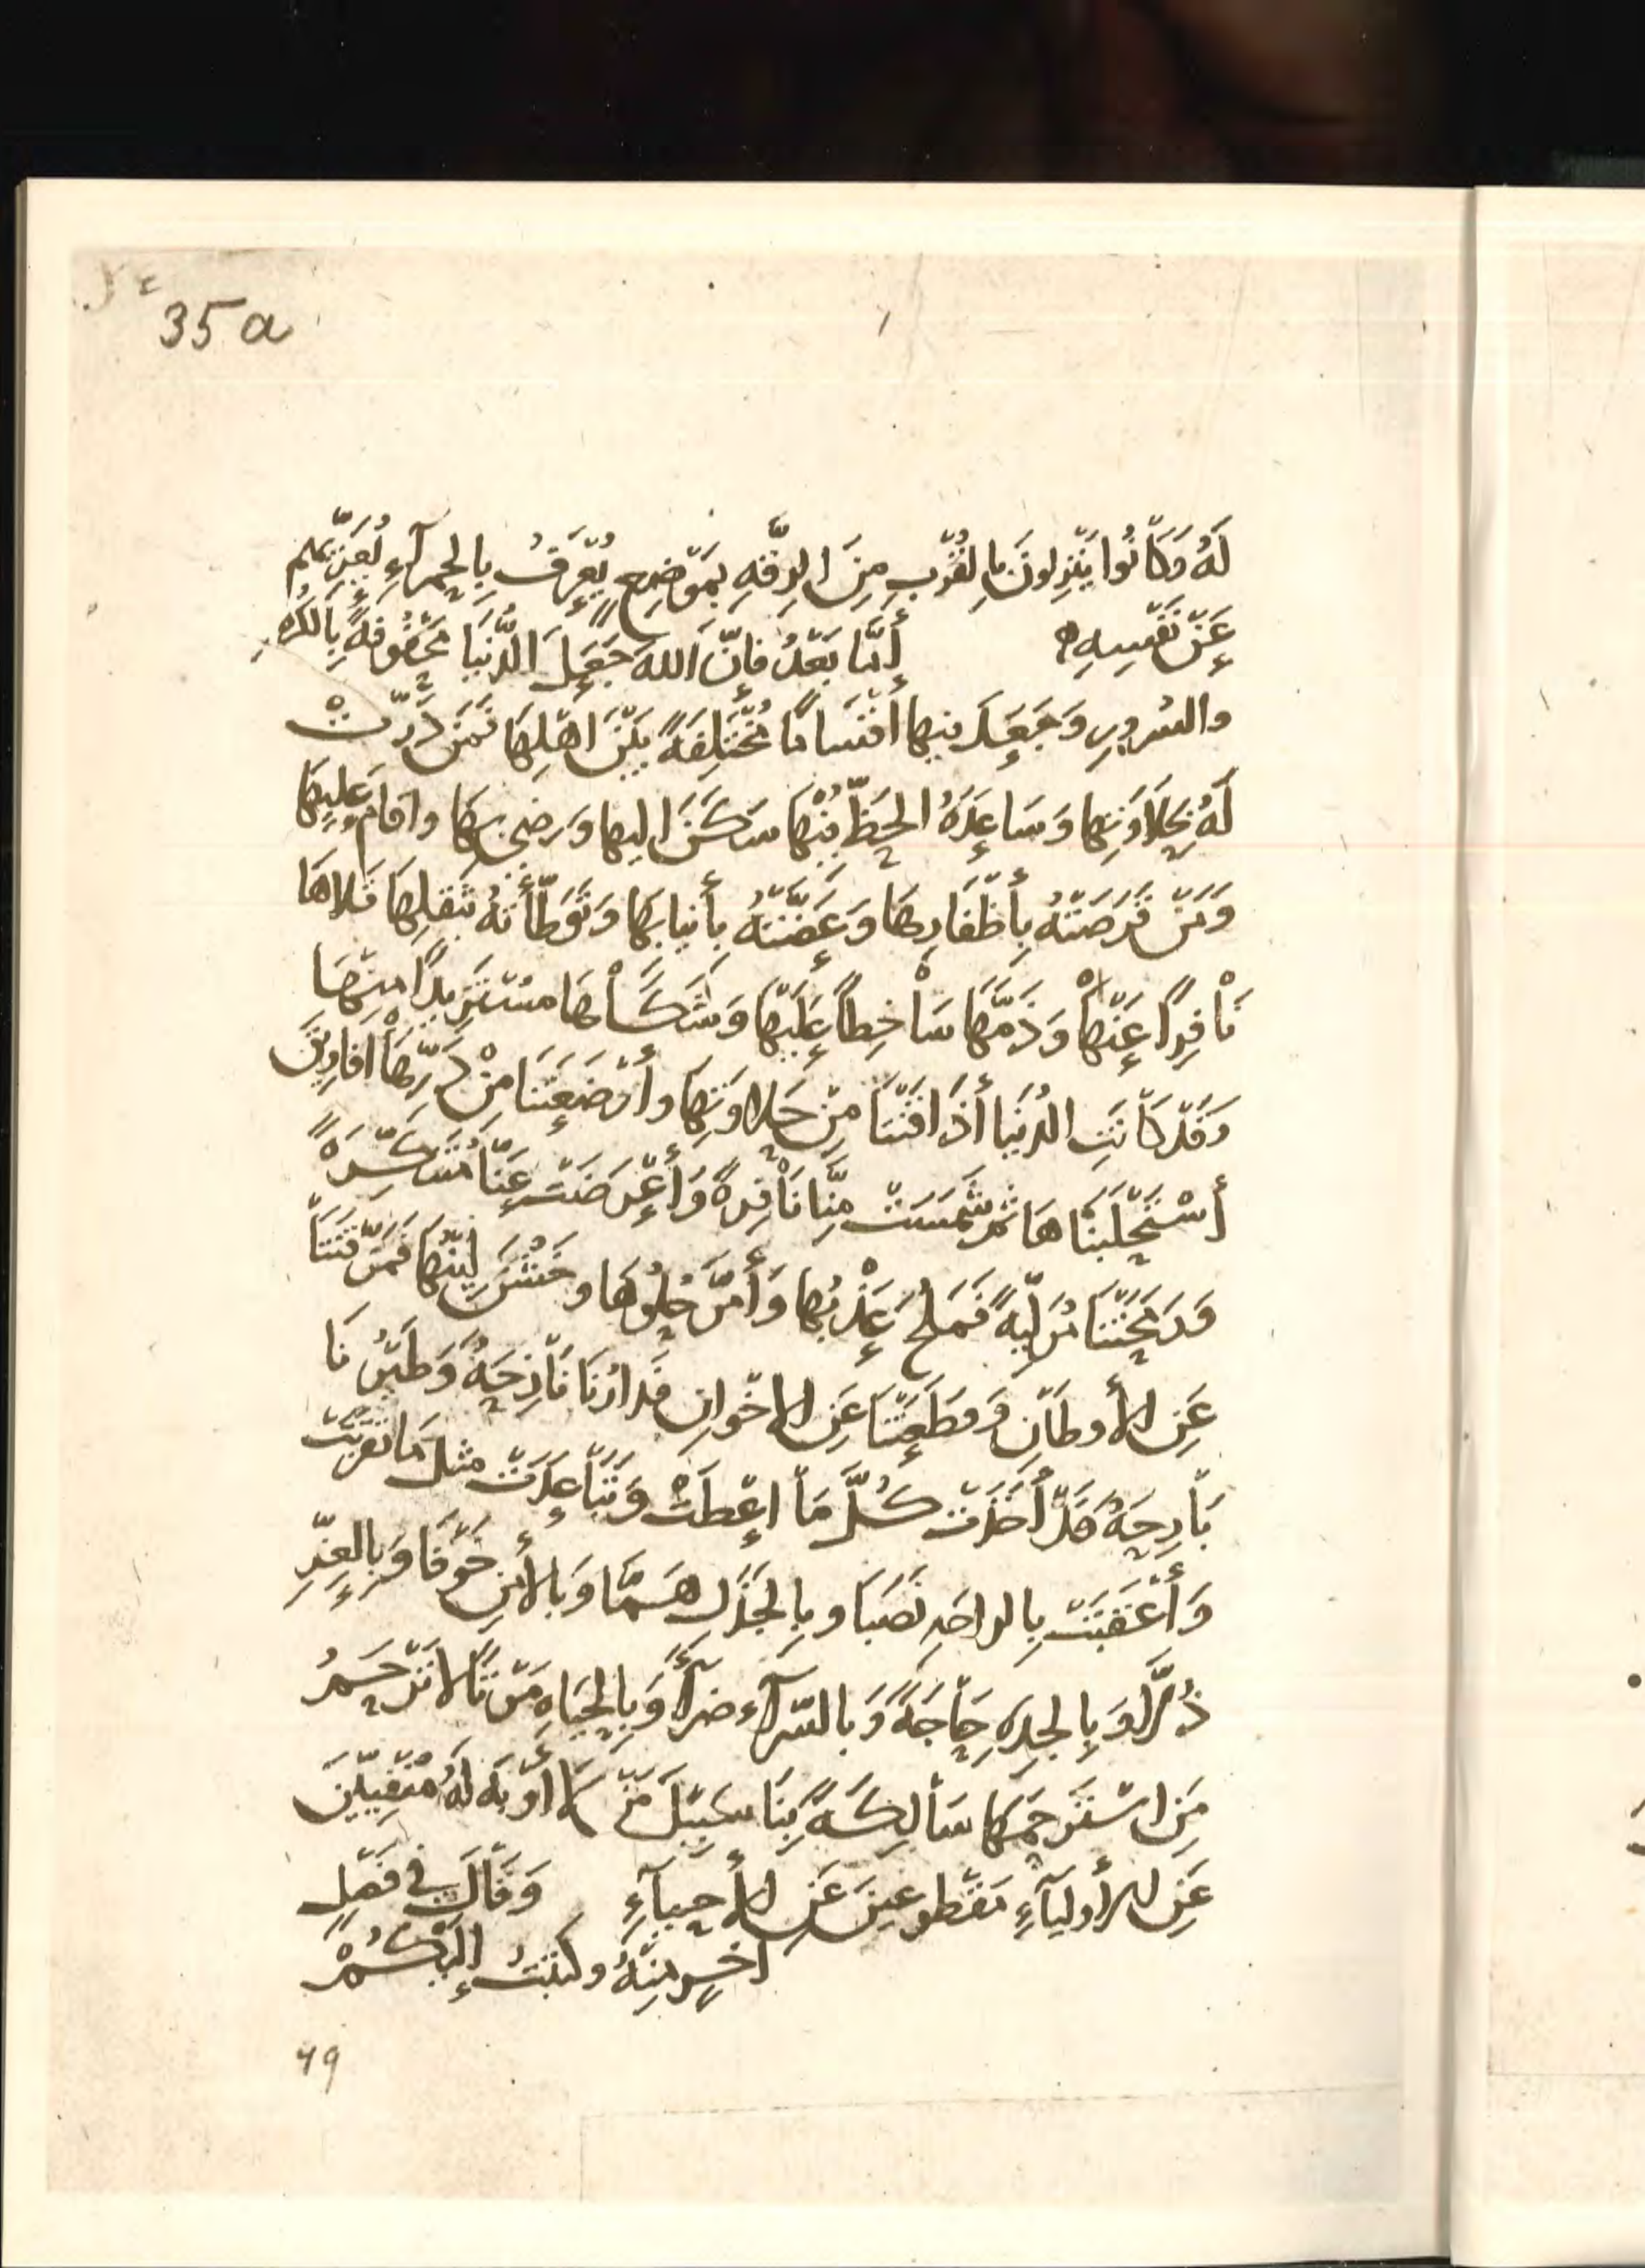 35a
لَهُ وَكَانُوا يَنْزِلُونَ بِالْقُرْبِ مِنَ الرِقَّةِ بِمَوْضِعٍ يُعْرَفُ بِالْحَمْرَآءِ يُعَزِّيهِم
عَنْ نَفْسِهِ أَمَّا بَعْدُ فَإِنَّ اللهَ جَعَلَ الدُّنْيَا مَحْفُوفَةً بِالكُرْهِ
والسُرورِ وَجَعَلَ فيها أَقْسَامًا مُخْتَلِفَةً بَيْنَ اَهْلِهَا فَمَنْ دَرَّتْ
لَهُ بِحَلَاوَتِها وَسَاعَدَهُ الحَظُّ مِنْهَا سَكَنَ اليها وَرَضِيَ بِهَا واقامَ عَليهَا
وَمَنْ قَرَصَتْهُ بِأَظْفَارِهَا وَعَضَّتْهُ بِأَنيابِهَا وَتَوَطَّأَتْهُ بثقلِهَا قَلاهَا
نَافِرًا عَنْهَا وَذَمَّهَا سَاخِطاً عَلَيْهَا وَشَكَاهَا مسْتَزِيدًا مِنْهَا
وَقَدْ كَانَتِ الدُنيَا أَذَاقَتْنَا مِنْ حَلاوَتِهَا وأرْضَعَتْنَا مِنْ دَرِّهَا أفَاوِيقَ
أسْتَحْلَبْنَاهَا ثم شَمَسَتْ مِنَّا نَافِرةً وَأَعْرَضَتْ عَنَّا مُتَنَكِّرَةً
وَرَمَحَتْنَا مُوَلِّيَةً فَمَلُحَ عَذْبُها وَأَمَرَّ حُلْوُهَا وخَشُنَ لِيْنُهَا فَمَزَّقَتْنَا
عَنِ الأوطَانِ وَقَطَعَتْنَا عَنِ الاخْوانِ فَدارُنَا نَازِحَةٌ وَطَيْرُنَا
بَارِحَةٌ قَدْ أَخَذَتْ كُلَّ مَا اعْطَتْ وَتَبَاعَدَتْ مثلَ مَا تقرّبَتْ
وَأَعْقَبَتْ بِالراحَةِ نَصَبَا وبِالجَذَلِ هَمًّا وَبالأمْنِ خَوْفًا وَبِالعِزِّ
ذُلًّا وَبِالجِدَةِ حَاجَةً وَبالسّرآءِ ضرآءً وَبِالحَيَاةِ مَوْتًا لاتَرْحَمُ
مَنِ اسْتَرحَمَهَا سَالِكَةً بِنَا سَبِيْلَ مَنْ لَا أَوْبَةَ لَهُ مَنْفِيِّيْنَ
عَنِ الأولِيَآءِ مَقْطوعينَ عَنِ الأحيآءِ وَقَالَ في فَصْلٍ
اخرِ مِنْهُ وكتبْتُ إِليْكُمْ
49